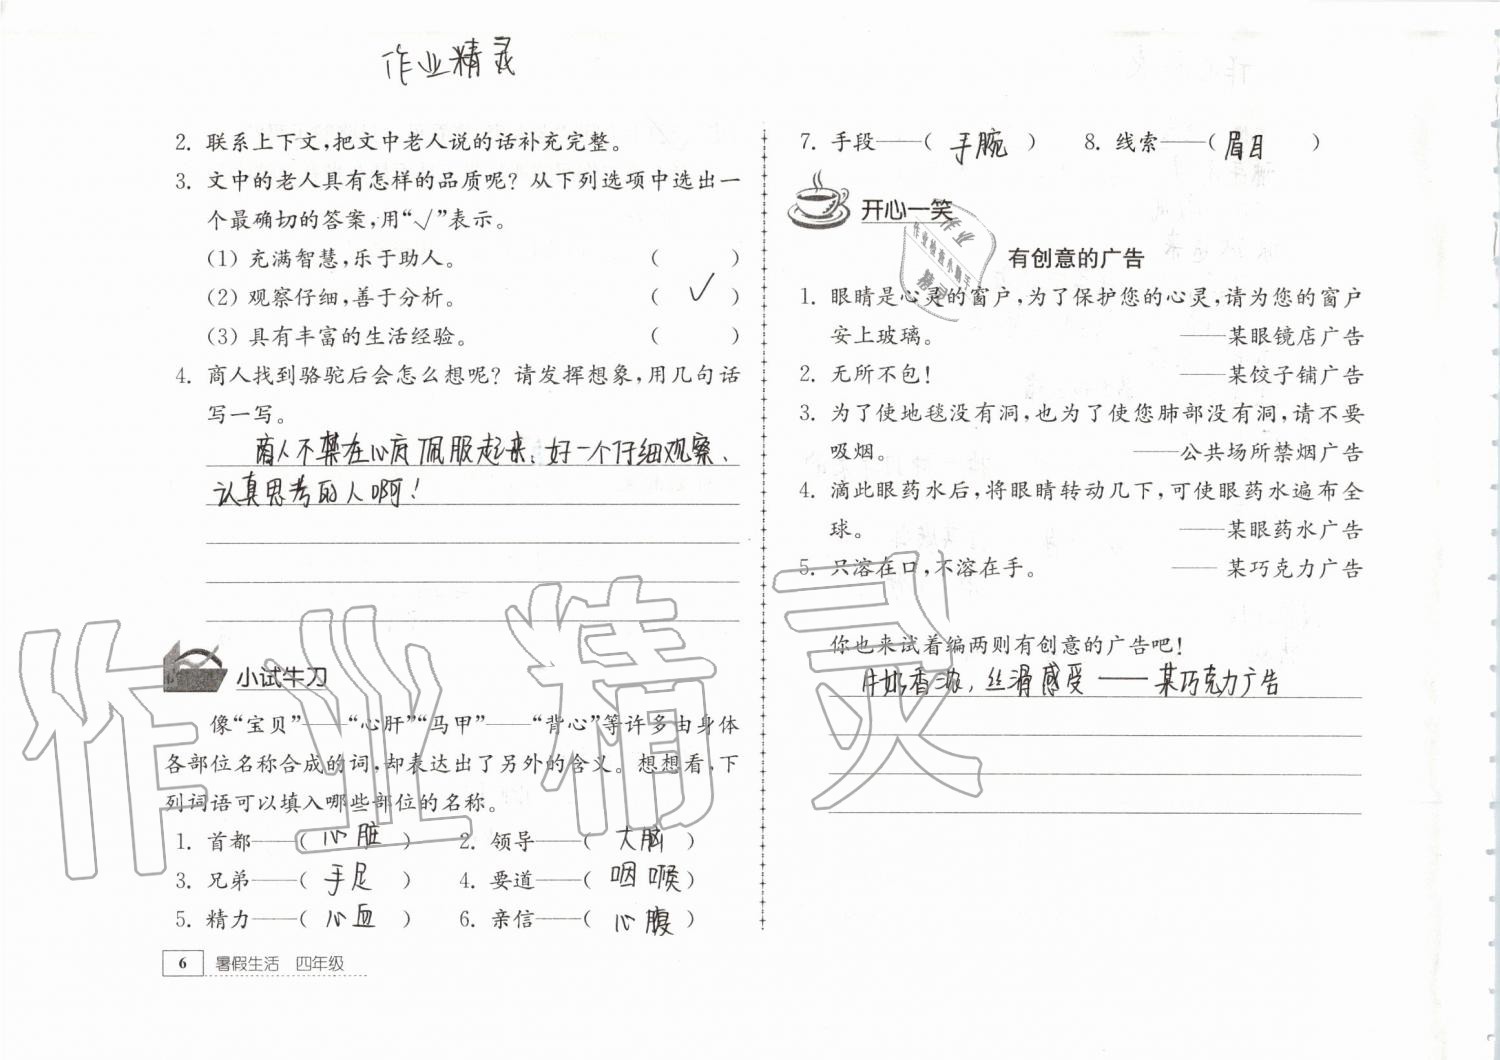 作业精灵
2. 联系上下文,把文中老人说的话补充完整。
3. 文中的老人具有怎样的品质呢？从下列选项中选出一
个最确切的答案,用“√”表示。
(1) 充满智慧,乐于助人。 (    )
(2) 观察仔细,善于分析。 ( √ )
(3) 具有丰富的生活经验。 (    )
4. 商人找到骆驼后会怎么想呢？请发挥想象,用几句话
写一写。
商人不禁在心底佩服起来、好一个仔细观察、
认真思考的人啊！
小试牛刀
像“宝贝”——“心肝”“马甲”——“背心”等许多由身体
各部位名称合成的词,却表达出了另外的含义。想想看,下
列词语可以填入哪些部位的名称。
1. 首都——( 心脏 ) 2. 领导——( 大脑 )
3. 兄弟——( 手足 ) 4. 要道——( 咽喉 )
5. 精力——( 心血 ) 6. 亲信——( 心腹 )
6 暑假生活 四年级
7. 手段——( 手腕 ) 8. 线索——( 眉目 )
开心一笑
有创意的广告
1. 眼睛是心灵的窗户,为了保护您的心灵,请为您的窗户
安上玻璃。 ——某眼镜店广告
2. 无所不包！ ——某饺子铺广告
3. 为了使地毯没有洞,也为了使您肺部没有洞,请不要
吸烟。 ——公共场所禁烟广告
4. 滴此眼药水后,将眼睛转动几下,可使眼药水遍布全
球。 ——某眼药水广告
5. 只溶在口,不溶在手。 ——某巧克力广告
你也来试着编两则有创意的广告吧！
牛奶香浓，丝滑感受——某巧克力广告
作业精灵